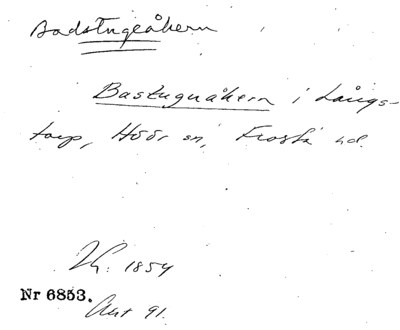 Badstugeåkern
Bastuguåkern i Långs-
torp, Höör sn, Frosta hd.
1854
Nr 6853.
Akt 91.